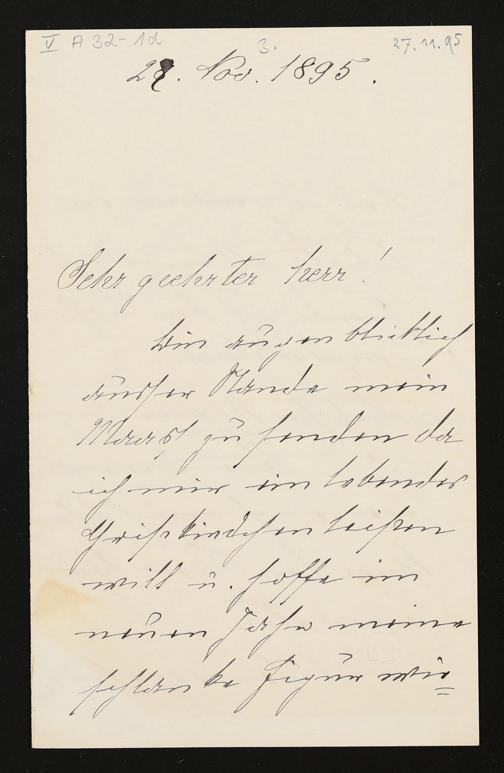 V A 32-1d 3. 27.11.95
27. Nov. 1895.
Sehr geehrter Herr!
Bin augenblicklich
ausser Stande mein
Maass zu senden da
ich mir ein lebendes
Christkindchen leisten
will u. hoffe im
neuen Jahr meine
schlanke Figur wie=